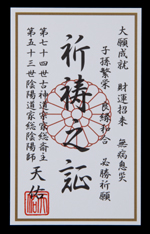 大願成就　財運招来　無病息災
子孫繁栄　良縁和合　必勝祈願
祈祷之証
第七十四世古神道宗家総斎主
第五十三世陰陽道宗家総陰陽師
天佑